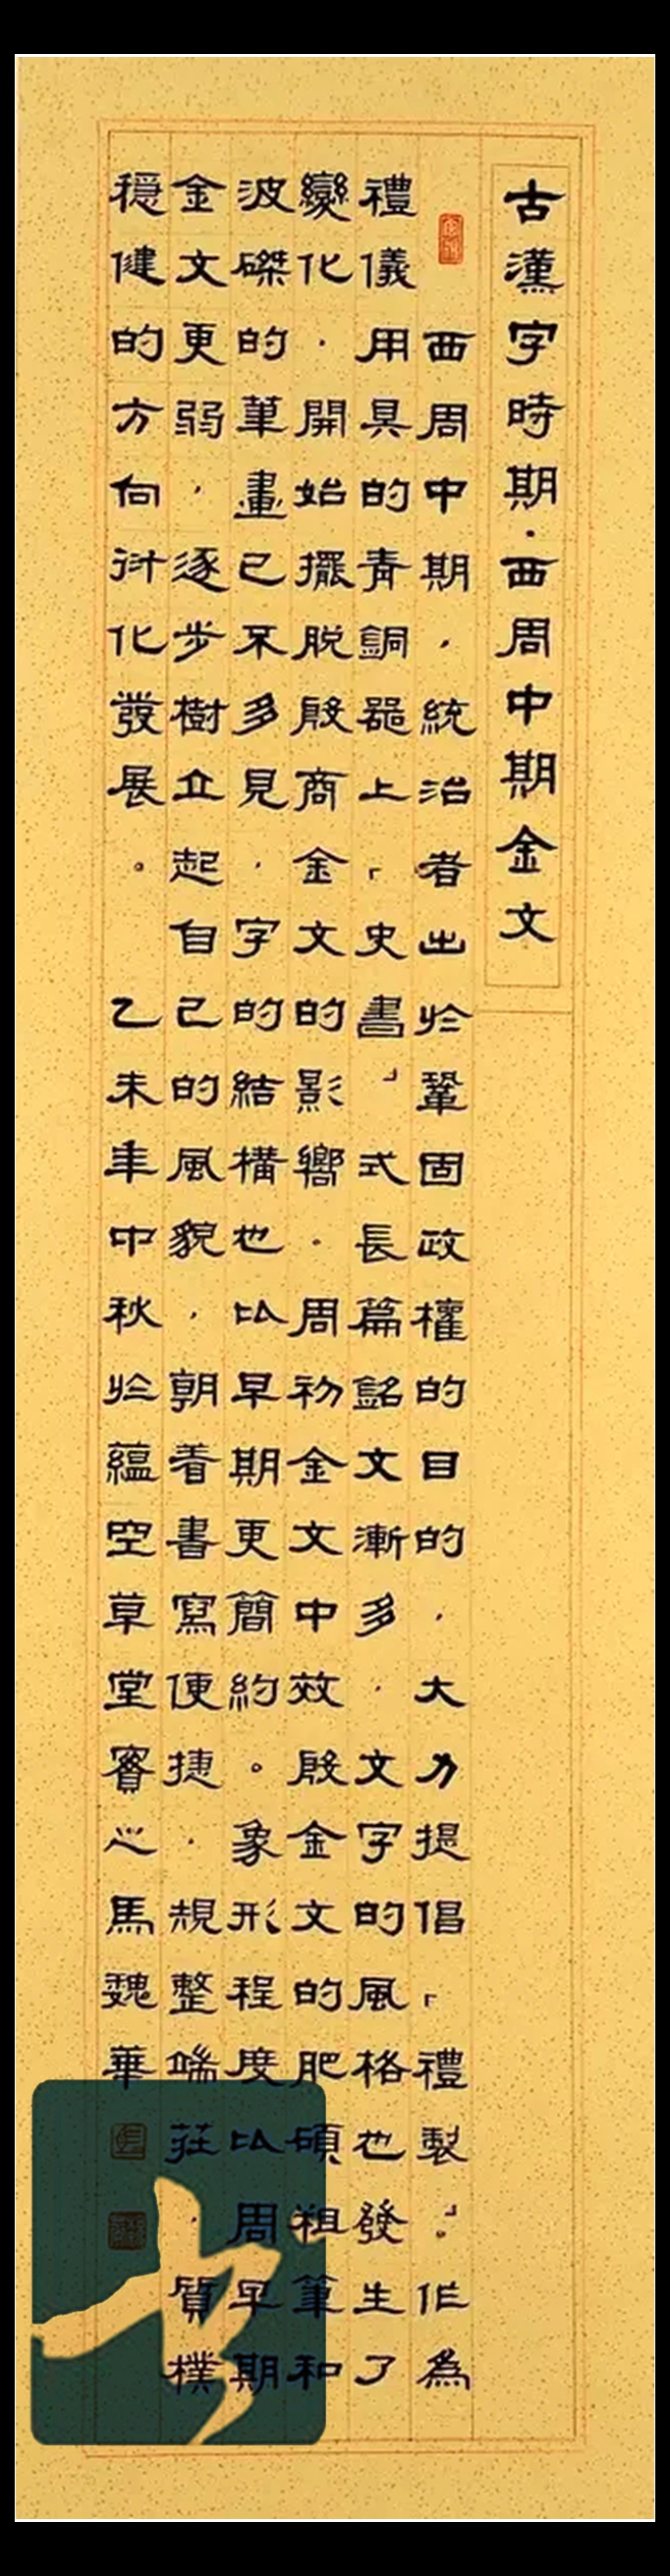 古漢字時期·西周中期金文
西周中期，統治者出於鞏固政權的目的，大力提倡「禮製」。作為
禮儀用具的青銅器上「史書」式長篇銘文漸多，文字的風格也發生了
變化，開始擺脫殷商金文的影響。周初金文中效殷金文的肥碩粗筆和
波磔的筆畫已不多見，字的結構也以早期更簡約。象形程度以周早期
金文更弱，逐步樹立起自己的風貌，朝着書寫便捷，規整端莊，質樸
穩健的方向衍化發展。乙未年中秋於蘊空草堂心馬魏華